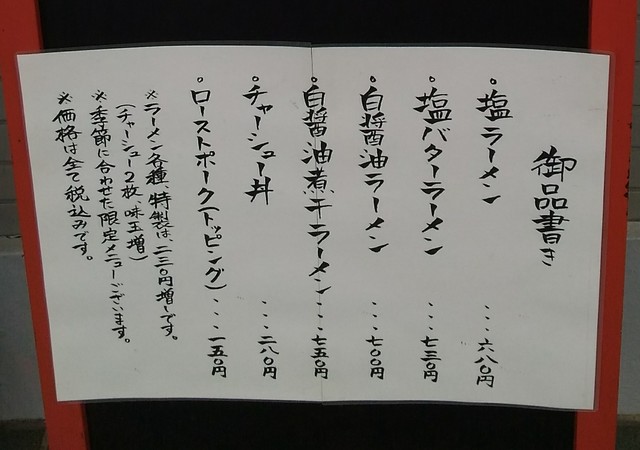 御品書き
。塩ラーメン ...六八〇円
。塩バターラーメン ...七三〇円
。白醤油ラーメン ...七〇〇円
。白醤油煮干ラーメン...七五〇円
。チャーシュー丼 ...二八〇円
。ローストポーク(トッピング)...一五〇円
※ラーメン各種、特製は、二三〇円増しです。
(チャーシュー2枚、味玉増)
※季節に合わせた限定メニューございます。
※価格は全て税込みです。